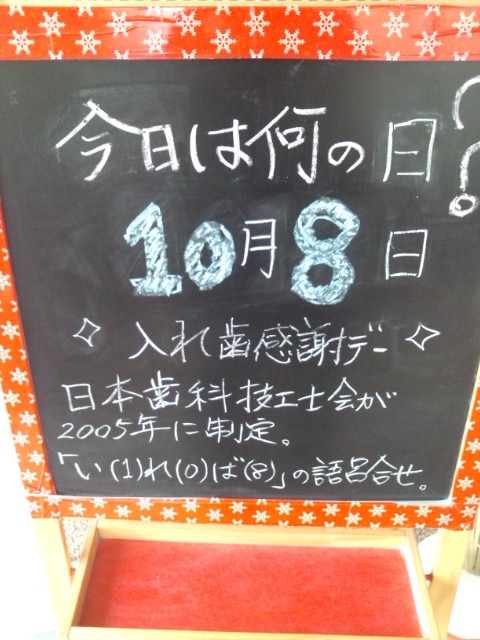 今日は何の日?
10月8日
✧ 入れ歯感謝デー ✧
日本歯科技工士会が
2005年に制定。
「い(1)れ(0)ば(8)」の語呂合せ。